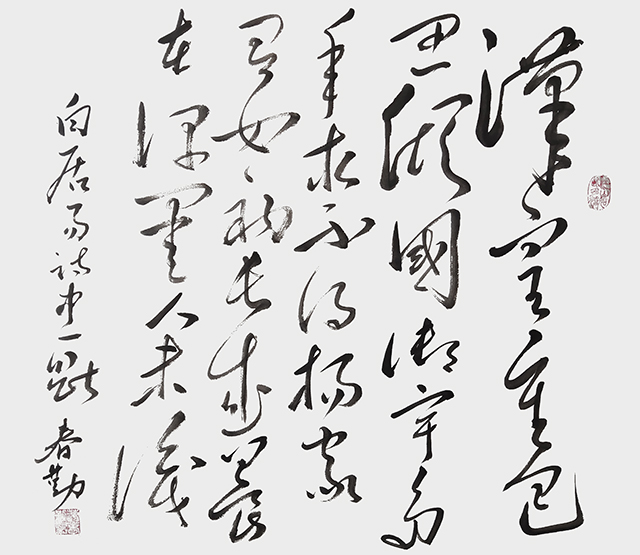 漢皇重色
思傾國御宇多
年求不得楊家
有女初長成養
在深閨人未識
白居易詩中一
春勤